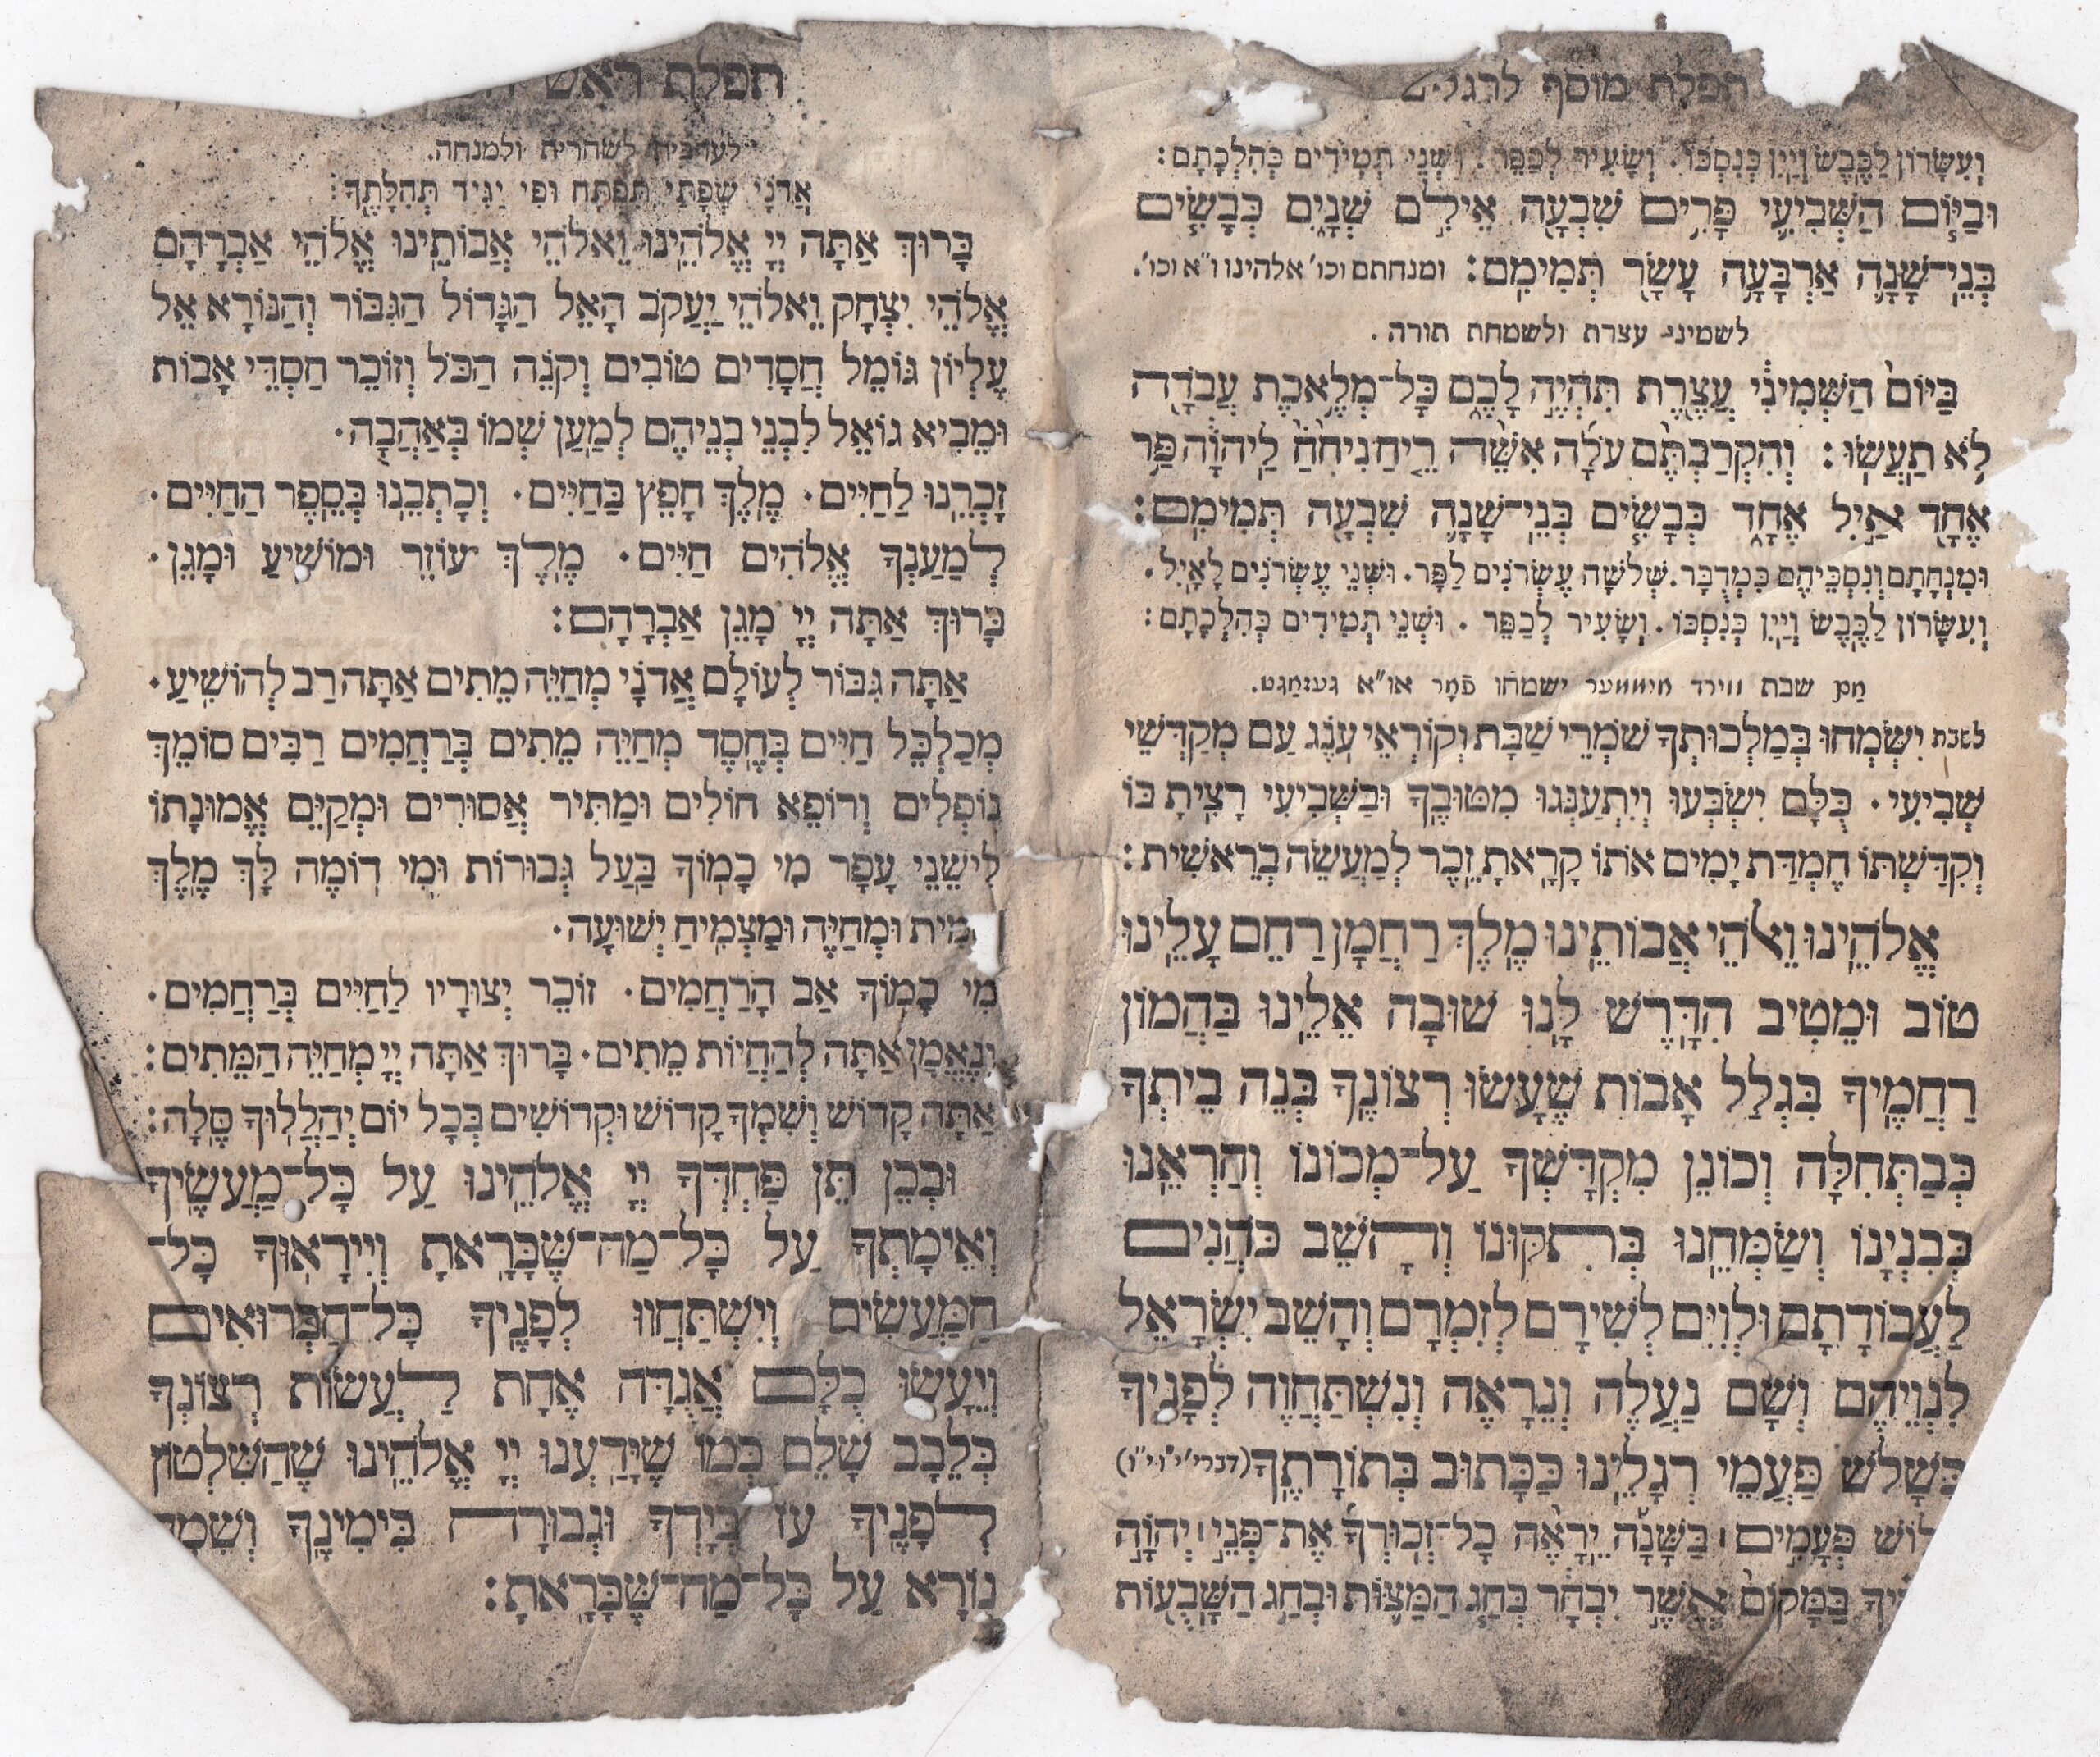 תפלת מוסף לרגלים
וְעִשָּׂרוֹן לַכֶּבֶשׂ וְיַיִן כְּנִסְכּוֹ. וְשָׂעִיר לְכַפֵּר. וּשְׁנֵי תְמִידִים כְּהִלְכָתָם:
וּבַיּוֹם הַשְּׁבִיעִי פָּרִים שִׁבְעָה אֵילִם שְׁנָיִם כְּבָשִׂים
בְּנֵי־שָׁנָה אַרְבָּעָה עָשָׂר תְּמִימִם: ומנחתם וכו' אלהינו ו"א וכו'.
לשמיני עצרת ולשמחת תורה.
בַּיּוֹם הַשְּׁמִינִי עֲצֶרֶת תִּהְיֶה לָכֶם כָּל־מְלֶאכֶת עֲבֹדָה
לֹא תַעֲשׂוּ: וְהִקְרַבְתֶּם עֹלָה אִשֵּׁה רֵיחַ נִיחֹחַ לַיהוָֹה פַּר
אֶחָד אַיִל אֶחָד כְּבָשִׂים בְּנֵי־שָׁנָה שִׁבְעָה תְּמִימִם:
וּמִנְחָתָם וְנִסְכֵּיהֶם כִּמְדֻבָּר. שְׁלשָׁה עֶשְׂרֹנִים לַפָּר. וּשְׁנֵי עֶשְׂרֹנִים לָאָיִל.
וְעִשָּׂרוֹן לַכֶּבֶשׂ וְיַיִן כְּנִסְכּוֹ. וְשָׂעִיר לְכַפֵּר. וּשְׁנֵי תְמִידִים כְּהִלְכָתָם:
אַם שבת ווירד היטטער ישמחו פֿאָר או"א געזאַגט.
לשבת יִשְׂמְחוּ בְמַלְכוּתְךָ שׁוֹמְרֵי שַׁבָּת וְקוֹרְאֵי עֹנֶג עַם מְקַדְּשֵׁי
שְׁבִיעִי. כֻּלָּם יִשְׂבְּעוּ וְיִתְעַנְּגוּ מִטּוּבֶךָ וּבַשְּׁבִיעִי רָצִיתָ בּוֹ
וְקִדַּשְׁתּוֹ חֶמְדַּת יָמִים אֹתוֹ קָרָאתָ זֵכֶר לְמַעֲשֵׂה בְרֵאשִׁית:
אֱלֹהֵינוּ וֵאלֹהֵי אֲבוֹתֵינוּ מֶלֶךְ רַחֲמָן רַחֵם עָלֵינוּ
טוֹב וּמֵטִיב הִדָּרֶשׁ לָנוּ שׁוּבָה אֵלֵינוּ בַּהֲמוֹן
רַחֲמֶיךָ בִּגְלַל אָבוֹת שֶׁעָשׂוּ רְצוֹנֶךָ בְּנֵה בֵיתְךָ
כְּבַתְּחִלָּה וְכוֹנֵן מִקְדָּשְׁךָ עַל־מְכוֹנוֹ וְהַרְאֵנוּ
בְּבִנְיָנוֹ וְשַׂמְּחֵנוּ בְּתִקּוּנוֹ וְהָשֵׁב כֹּהֲנִים
לַעֲבוֹדָתָם וּלְוִיִּם לְשִׁירָם לְזִמְרָם וְהָשֵׁב יִשְׂרָאֵל
לִנְוֵיהֶם וְשָׁם נַעֲלֶה וְנֵרָאֶה וְנִשְׁתַּחֲוֶה לְפָנֶיךָ
בְּשָׁלשׁ פַּעֲמֵי רְגָלֵינוּ כַּכָּתוּב בְּתוֹרָתֶךָ
לוֹשׁ פְּעָמִים בַּשָּׁנָה יֵרָאֶה כָל־זְכוּרְךָ אֶת־פְּנֵי יְהוָֹה
יךָ בַּמָּקוֹם אֲשֶׁר יִבְחָר בְּחַג הַמַּצּוֹת וּבְחַג הַשָּׁבֻעוֹת
תפלת ראש
לערבית לשחרית ולמנחה.
אֲדֹנָי שְׂפָתַי תִּפְתָּח וּפִי יַגִּיד תְּהִלָּתֶךָ:
בָּרוּךְ אַתָּה יְיָ אֱלֹהֵינוּ וֵאלֹהֵי אֲבוֹתֵינוּ אֱלֹהֵי אַבְרָהָם
אֱלֹהֵי יִצְחָק וֵאלֹהֵי יַעֲקֹב הָאֵל הַגָּדוֹל הַגִּבּוֹר וְהַנּוֹרָא אֵל
עֶלְיוֹן גּוֹמֵל חֲסָדִים טוֹבִים וְקוֹנֵה הַכֹּל וְזוֹכֵר חַסְדֵי אָבוֹת
וּמֵבִיא גוֹאֵל לִבְנֵי בְנֵיהֶם לְמַעַן שְׁמוֹ בְּאַהֲבָה.
זָכְרֵנוּ לַחַיִּים. מֶלֶךְ חָפֵץ בַּחַיִּים. וְכָתְבֵנוּ בְּסֵפֶר הַחַיִּים.
לְמַעַנְךָ אֱלֹהִים חַיִּים. מֶלֶךְ עוֹזֵר וּמוֹשִׁיעַ וּמָגֵן.
בָּרוּךְ אַתָּה יְיָ מָגֵן אַבְרָהָם:
אַתָּה גִּבּוֹר לְעוֹלָם אֲדֹנָי מְחַיֵּה מֵתִים אַתָּה רַב לְהוֹשִׁיעַ.
מְכַלְכֵּל חַיִּים בְּחֶסֶד מְחַיֵּה מֵתִים בְּרַחֲמִים רַבִּים סוֹמֵךְ
נוֹפְלִים וְרוֹפֵא חוֹלִים וּמַתִּיר אֲסוּרִים וּמְקַיֵּם אֱמוּנָתוֹ
לִישֵׁנֵי עָפָר מִי כָמוֹךָ בַּעַל גְּבוּרוֹת וּמִי דוֹמֶה לָּךְ מֶלֶךְ
מִית וּמְחַיֶּה וּמַצְמִיחַ יְשׁוּעָה.
מִי כָמוֹךָ אַב הָרַחֲמִים. זוֹכֵר יְצוּרָיו לַחַיִּים בְּרַחֲמִים.
וְנֶאֱמָן אַתָּה לְהַחֲיוֹת מֵתִים. בָּרוּךְ אַתָּה יְיָ מְחַיֵּה הַמֵּתִים:
אַתָּה קָדוֹשׁ וְשִׁמְךָ קָדוֹשׁ וּקְדוֹשִׁים בְּכָל יוֹם יְהַלְלוּךָ סֶּלָה:
וּבְכֵן תֵּן פַּחְדְּךָ יְיָ אֱלֹהֵינוּ עַל כָּל־מַעֲשֶׂיךָ
וְאֵימָתְךָ עַל כָּל־מַה־שֶּׁבָּרָאתָ וְיִירָאוּךָ כָּל־
הַמַּעֲשִׂים וְיִשְׁתַּחֲווּ לְפָנֶיךָ כָּל־הַבְּרוּאִים
וְיֵעָשׂוּ כֻלָּם אֲגֻדָּה אֶחָת לַעֲשׂוֹת רְצוֹנְךָ
בְּלֵבָב שָׁלֵם כְּמוֹ שֶׁיָּדַעְנוּ יְיָ אֱלֹהֵינוּ שֶׁהַשִּׁלְטוֹן
לְפָנֶיךָ עֹז בְּיָדְךָ וּגְבוּרָה בִּימִינֶךָ וְשִׁמְךָ
נוֹרָא עַל כָּל־מַה־שֶּׁבָּרָאתָ: